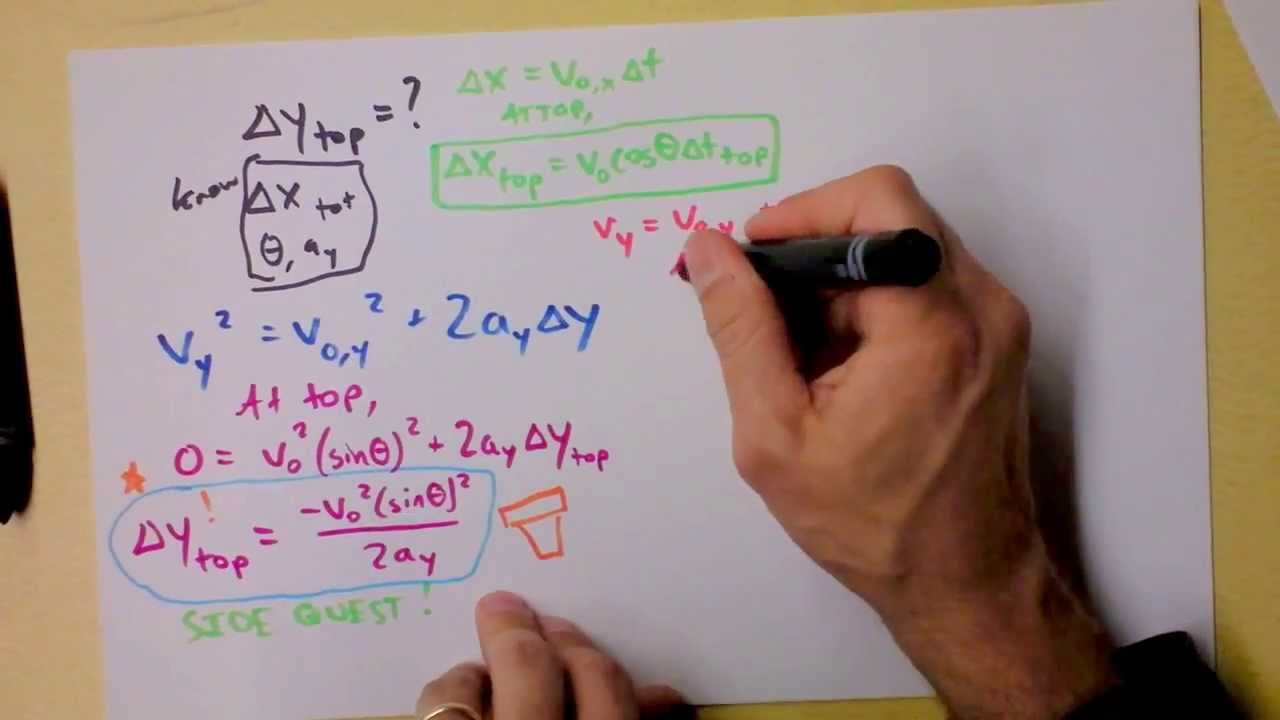 Δy_top = ?
know
Δx_tot
θ, a_y
Δx = v_{0,x} Δt
AT TOP,
Δx_top = v_0 cosθ Δt_top
v_y = v_{0,y} +
v_y^2 = v_{0,y}^2 + 2a_yΔy
At top,
0 = v_0^2 (sinθ)^2 + 2a_y Δy_top
! Δy_top = -v_0^2 (sinθ)^2 / 2a_y
SIDE QUEST!